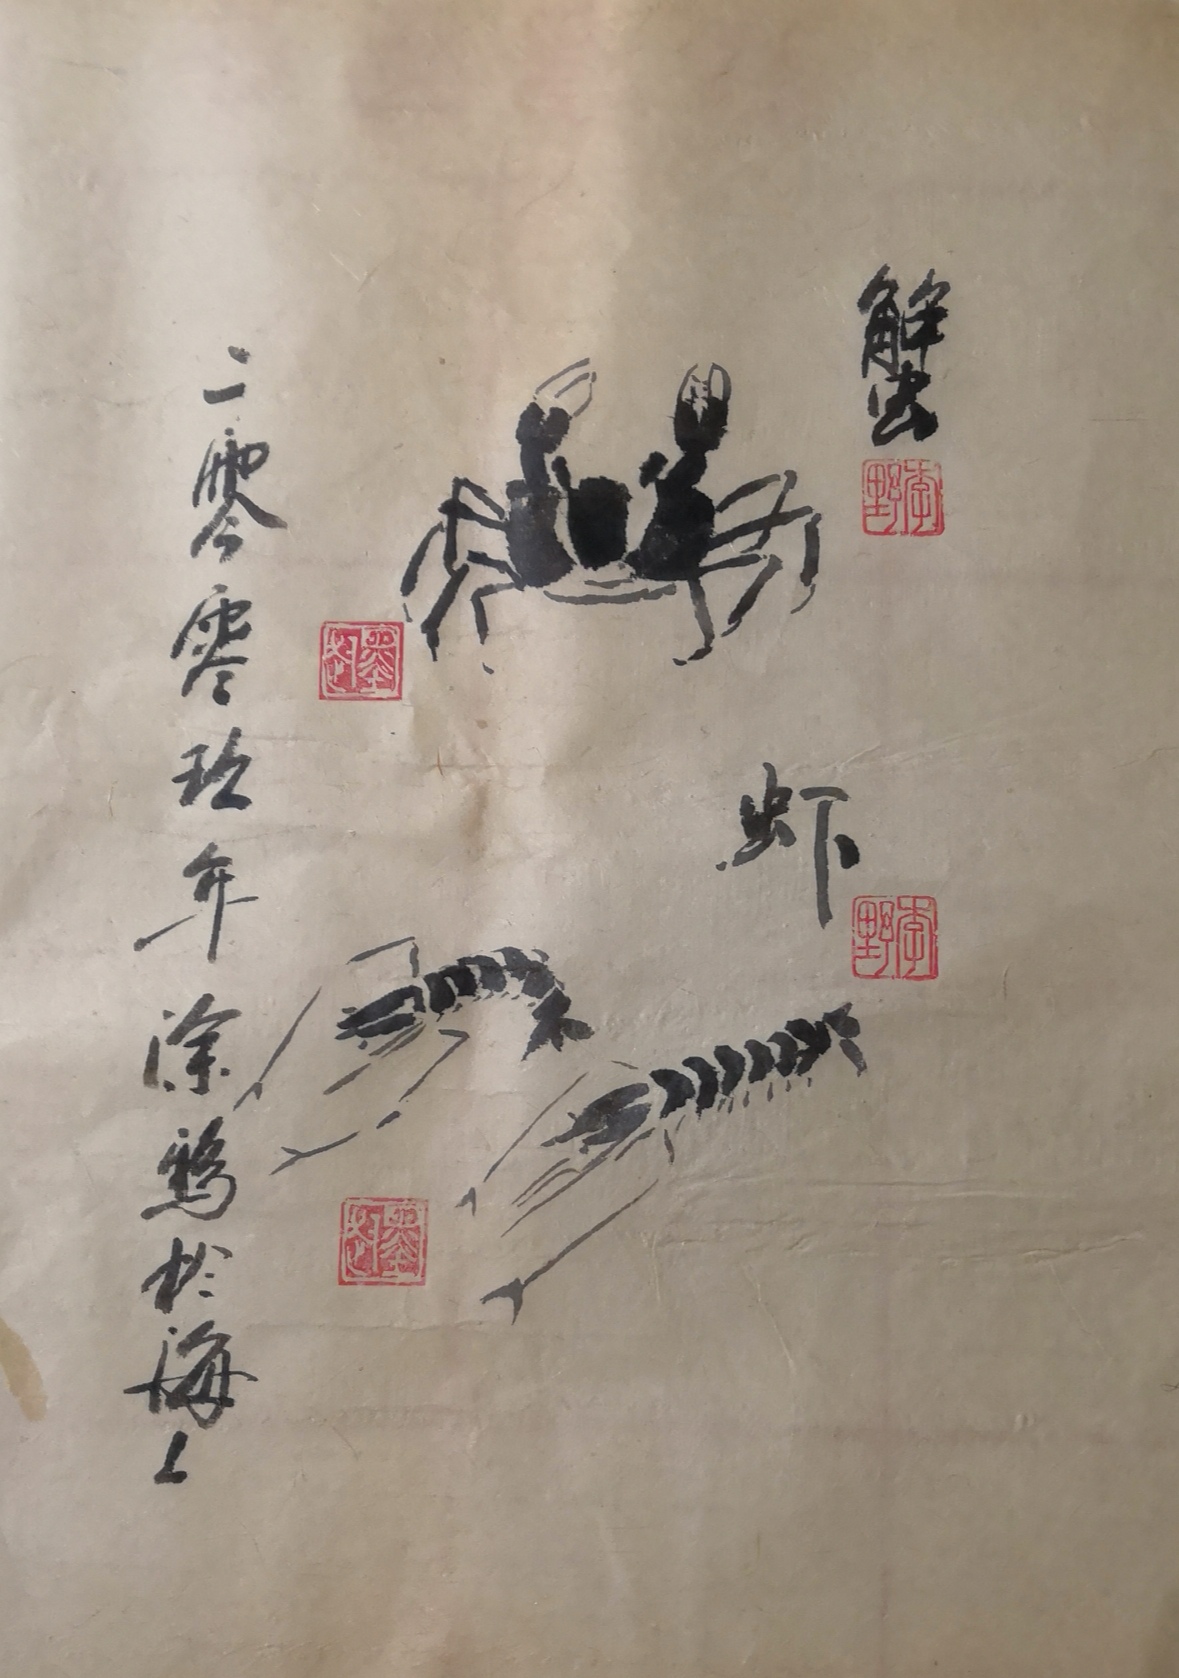 蟹
虾
二零零玖年涂鸦於海上